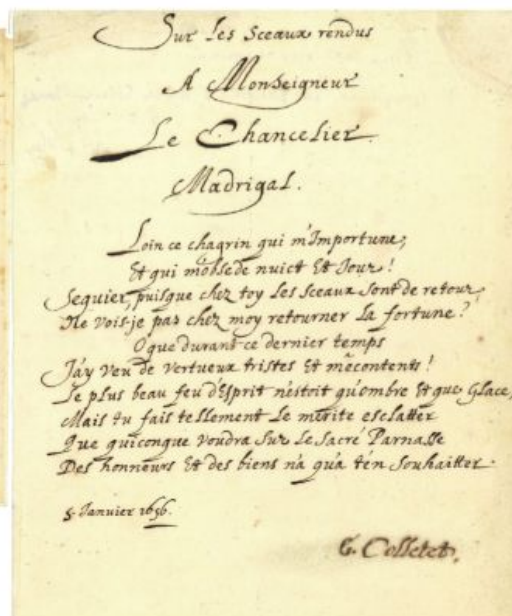 Sur Les Sceaux rendus
A Monseigneur
Le Chancelier.
Madrigal.
Loin ce chagrin qui m'Importune,
Et qui m'obsede nuict Et Jour!
Seguier, puisque chez toy Les Sceaux sont de retour,
Ne vois-je pas chez moy retourner La fortune?
O que durant ce dernier temps
J'ay veu de vertueux tristes Et mécontents!
Le plus beau feu d'Esprit n'estoit qu'ombre Et que Glace,
Mais tu fais tellement Le mérite esclatter
Que quiconque voudra Sur Le Sacré Parnasse
Des honneurs Et des biens n'a qu'a t'en Souhaitter.
5. Janvier 1656.
G. Colletet.